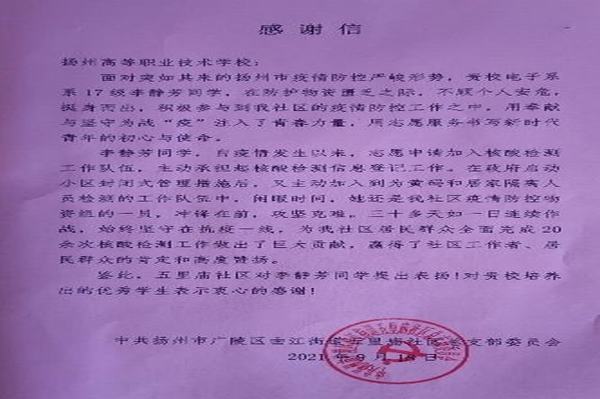 感谢信
扬州高等职业技术学校：
面对突如其来的扬州市疫情防控严峻形势，贵校电子系
系17级李静芳同学，在防护物资匮乏之际，不顾个人安危，
挺身而出，积极参与到我社区的疫情防控工作之中，用奉献
与坚守为战“疫”注入了青春力量，用志愿服务书写新时代
青年的初心与使命。
李静芳同学，自疫情发生以来，志愿申请加入核酸检测
工作队伍，主动承担起核酸检测信息登记工作。在政府启动
小区封闭式管理措施后，又主动加入到为黄码和居家隔离人
员检测的工作队伍中，闲暇时间，她还是我社区疫情防控物
资组的一员，冲锋在前，攻坚克难。三十多天如一日连续作
战，始终坚守在抗疫一线，为我社区居民群众全面完成20
余次核酸检测工作做出了巨大贡献，赢得了社区工作者、居
民群众的肯定和高度赞扬。
鉴此，五里庙社区对李静芳同学提出表扬！对贵校培养
出的优秀学生表示衷心的感谢！
中共扬州市广陵区曲江街道五里庙社区总支部委员会
2021年9月18日